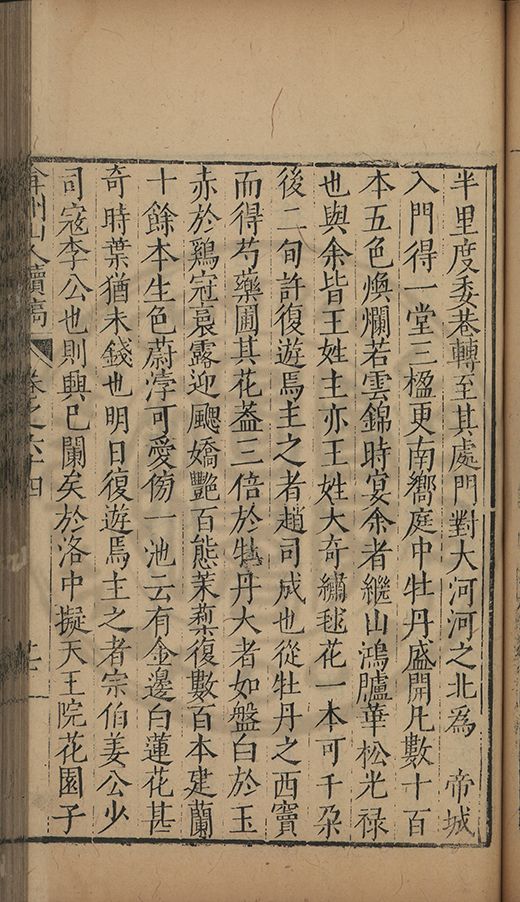 半里度委巷轉至其處門對大河河之北為　帝城
入門得一堂三楹更南嚮庭中牡丹盛開凡數十百
本五色煥爛若雲錦時宴余者繼山鴻臚華松光祿
也與余皆王姓主亦王姓大奇繡毬花一本可千朶
後二旬許復遊焉主之者趙司成也從牡丹之西竇
而得芍藥圃其花葢三倍於牡丹大者如盤白於玉
赤於鷄冠裛露迎颸嬌艷百態茉藜復數百本建蘭
十餘本生色蔚浡可愛傍一池云有金邊白蓮花甚
奇時葉猶未錢也明日復遊焉主之者宗伯姜公少
司寇李公也則興已闌矣於洛中擬天王院花園子
弇州山人續稿　卷之六十四